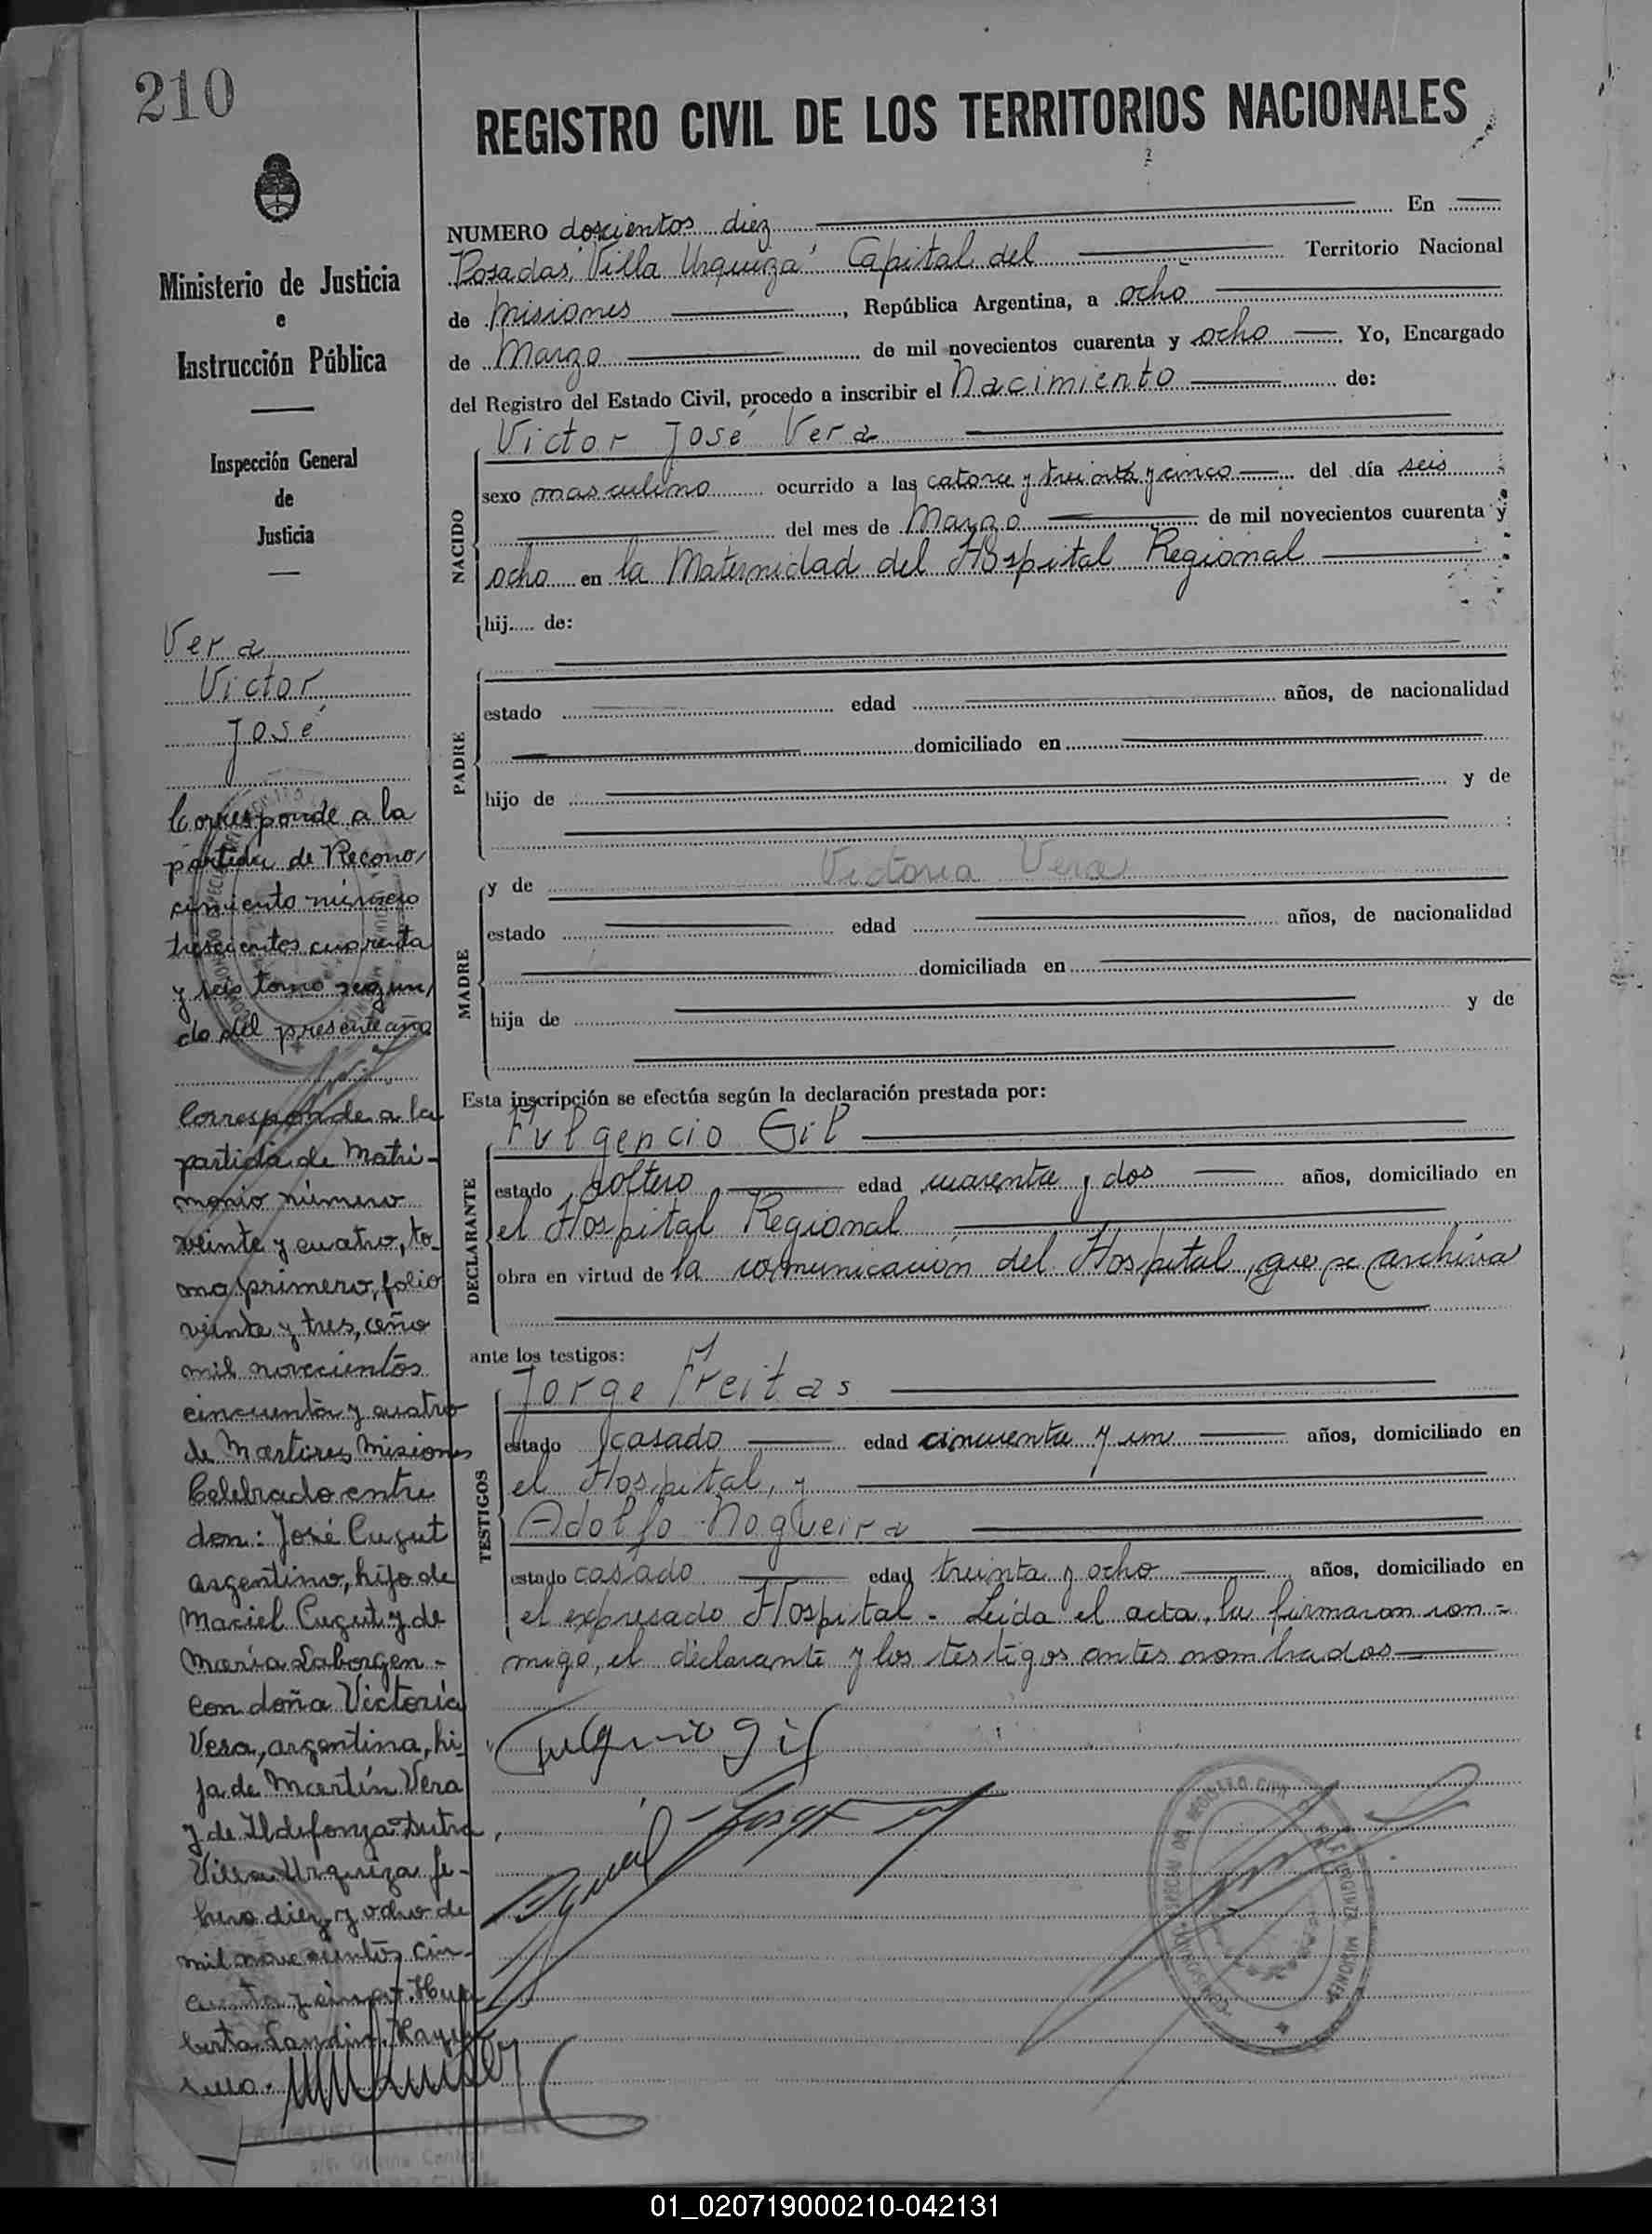 210
REGISTRO CIVIL DE LOS TERRITORIOS NACIONALES
Ministerio de Justicia
e
Instrucción Pública
Inspección General
de
Justicia
Vera
Victor
José
Corresponde a la
partida de Recono
cimiento número
trescientos cuarenta
y seis tomo segun
do del presente año
Corresponde a la
partida de Matri-
monio número
veinte y cuatro, to-
mo primero, folio
veinte y tres, año
mil novecientos
cincuenta y cuatro
de Martires Misiones
Celebrado entre
don: José Cugut
argentino, hijo de
Maciel Cugut y de
María Laborgen-
con doña Victoria
Vera, argentina, hi-
ja de Martín Vera
y de Ildefonza Dutra,
Villa Urquiza fe-
brero diez y ocho de
mil novecientos cin-
cuenta y cinco.
NUMERO doscientos diez En
Posadas "Villa Urquiza" Capital del Territorio Nacional
de Misiones, República Argentina, a ocho
de Marzo de mil novecientos cuarenta y ocho. Yo, Encargado
del Registro del Estado Civil, procedo a inscribir el Nacimiento de:
NACIDO
Victor José Vera
sexo masculino ocurrido a las catorce y treinta y cinco del día seis
del mes de Marzo de mil novecientos cuarenta y
ocho en la Maternidad del Hospital Regional
hij..... de:
PADRE
estado edad años, de nacionalidad
domiciliado en
hijo de y de
MADRE
y de Victoria Vera
estado edad años, de nacionalidad
domiciliada en
hija de y de
Esta inscripción se efectúa según la declaración prestada por:
DECLARANTE
Fulgencio Gil
estado soltero edad cuarenta y dos años, domiciliado en
el Hospital Regional
obra en virtud de la comunicación del Hospital, que se archiva
ante los testigos:
TESTIGOS
Jorge Freitas
estado casado edad cincuenta y un años, domiciliado en
el Hospital, y
Adolfo Nogueira
estado casado edad treinta y ocho años, domiciliado en
el expresado Hospital - Leida el acta, la firmaron con=
migo, el declarante y los testigos antes nombrados
Fulgencio Gil
01_020719000210-042131